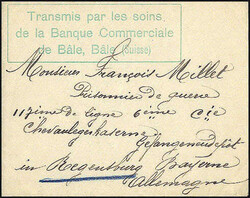 Transmis par les soins
de la Banque Commerciale
de Bâle, Bâle (Suisse)
Monsieur François Millet
Prisonnier de guerre
117ième de ligne 6ième Cie
Chevaulegerkaserne
Gefangenendepot
in Regensburg Bayerne
Allemagne